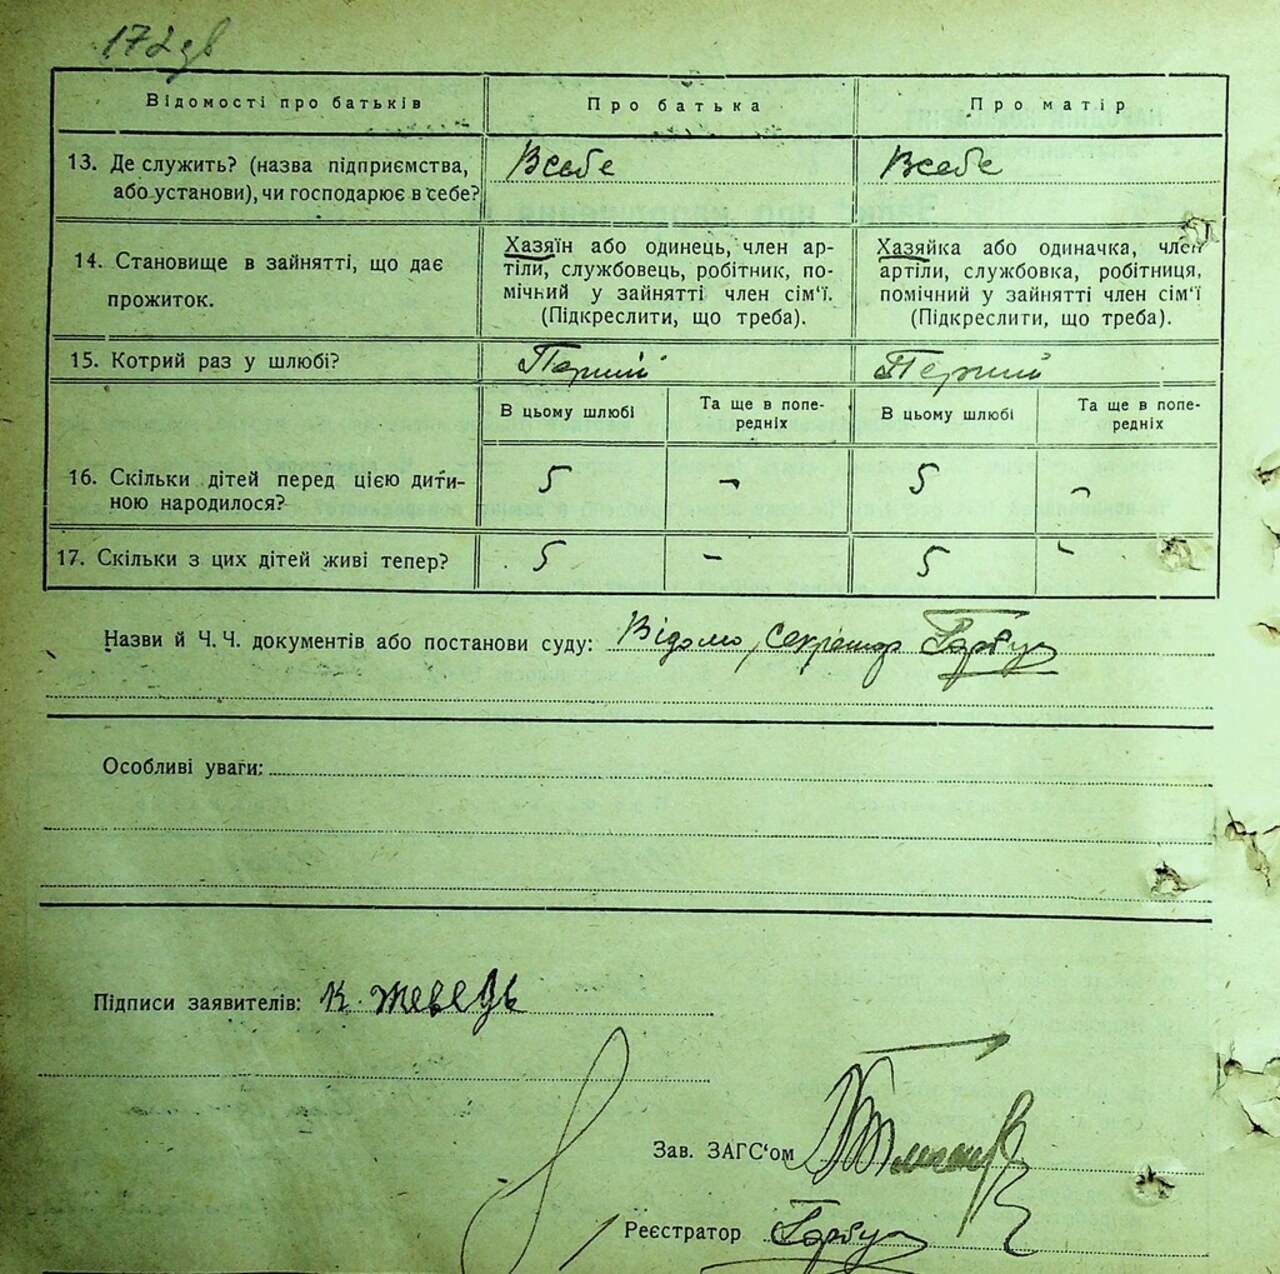 172 зв
Відомості про батьків
Про батька
Про матір
13. Де служить? (назва підприємства,
або установи), чи господарює в себе?
В себе
В себе
14. Становище в зайнятті, що дає
прожиток.
Хазяїн або одинець, член ар-
тіли, службовець, робітник, по-
мічний у зайнятті член сім'ї.
(Підкреслити, що треба).
Хазяйка або одиначка, член
артіли, службовка, робітниця,
помічний у зайнятті член сім'ї
(Підкреслити, що треба).
15. Котрий раз у шлюбі?
Перший
Перший
В цьому шлюбі
Та ще в попе-
редніх
В цьому шлюбі
Та ще в попе-
редніх
16. Скільки дітей перед цією дити-
ною народилося?
5
-
5
-
17. Скільки з цих дітей живі тепер?
5
-
5
-
Назви й Ч. Ч. документів або постанови суду: Відомо, секретар Гарбуз
Особливі уваги:
Підписи заявителів: К. Швець
Зав. ЗАГС'ом
Реєстратор Гарбуз